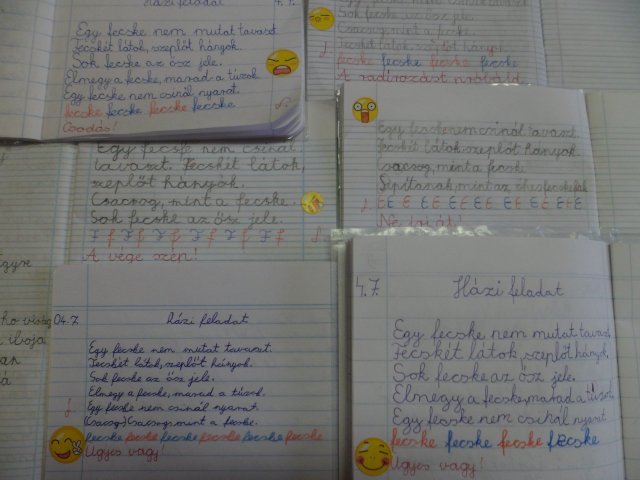 Házi feladat 4. 7.
Egy fecske nem mutat tavaszt.
Fecskét látok, szeplőt hányok.
Sok fecske az ősz jele.
Elmegy a fecske, marad a tüzok.
Egy fecske nem csinál nyarat.
fecske fecske fecske fecske
Csodás!
Sok fecske az ősz jele.
Csacsog, mint a fecske.
Fecskét látok, szeplőt hányok!
fecske fecske fecske fecske
A radírozást próbáld
Egy fecske nem csinál
tavaszt. Fecskét látok,
szeplőt hányok.
Csacsog, mint a fecske.
Sok fecske az ősz jele.
F f F f F f F f F f
A vége szép!
Egy fecske nem csinál tavaszt.
Fecskét látok szeplőt hányok.
Csacsog, mint a fecske
Sipítanak, mint az éhes fecskefiak
Ne írj át!
04. 7. Házi feladat
Egy fecske nem mutat tavaszt.
Fecskét látok, szeplőt hányok.
Sok fecske az ősz jele.
Elmegy a fecske, marad a túzok.
Egy fecske nem csinál nyarat.
(Csacsog) Csacsog, mint a fecske.
fecske fecske fecske fecske fecske fecske
Ügyes vagy!
4. 7. Házi feladat
Egy fecske nem mutat tavaszt.
Fecskét látok, szeplőt hányok.
Sok fecske az ősz jele.
Elmegy a fecske, marad a túzok.
Egy fecske nem csinál nyarat
fecske fecske fecske fecske
Ügyes vagy!